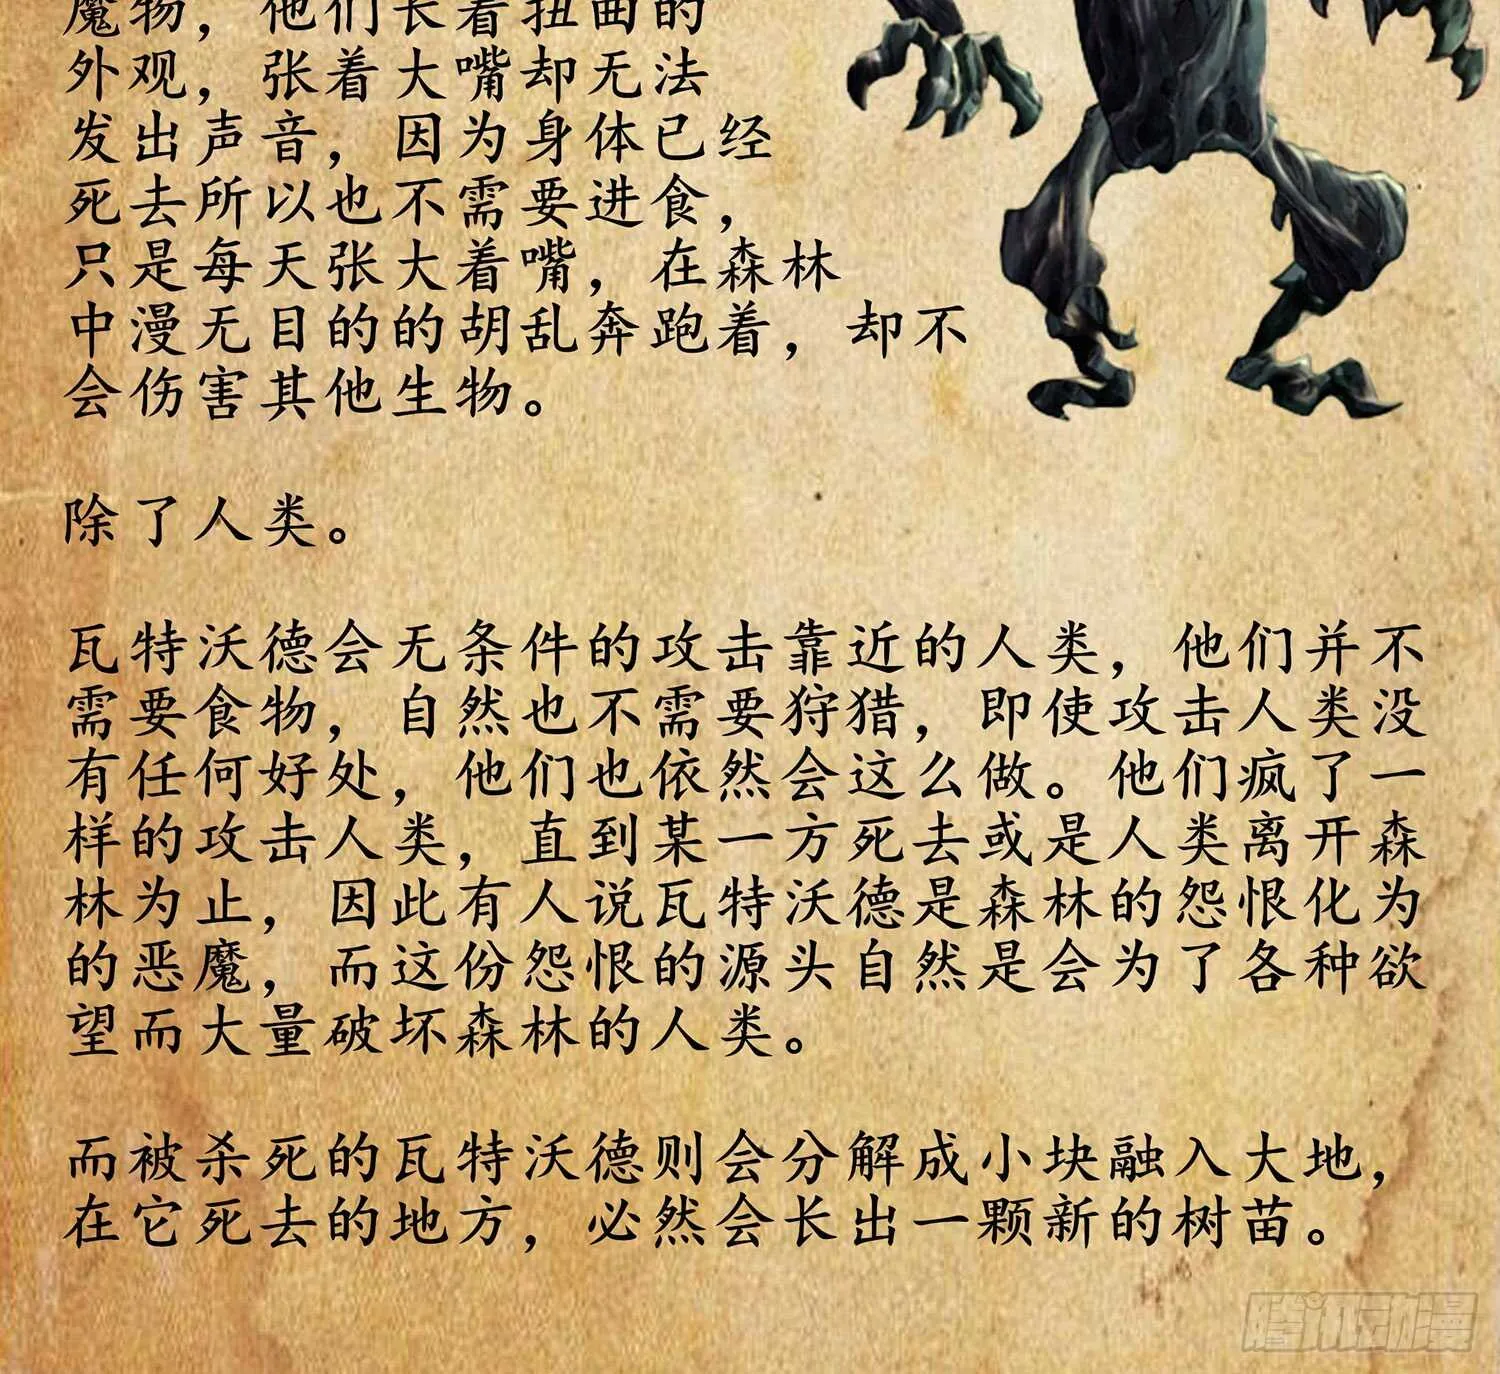 魔物，他们长着扭曲的
外观，张着大嘴却无法
发出声音，因为身体已经
死去所以也不需要进食，
只是每天张大着嘴，在森林
中漫无目的的胡乱奔跑着，却不
会伤害其他生物。
除了人类。
瓦特沃德会无条件的攻击靠近的人类，他们并不
需要食物，自然也不需要狩猎，即使攻击人类没
有任何好处，他们也依然会这么做。他们疯了一
样的攻击人类，直到某一方死去或是人类离开森
林为止，因此有人说瓦特沃德是森林的怨恨化为
的恶魔，而这份怨恨的源头自然是会为了各种欲
望而大量破坏森林的人类。
而被杀死的瓦特沃德则会分解成小块融入大地，
在它死去的地方，必然会长出一颗新的树苗。
腾讯动漫